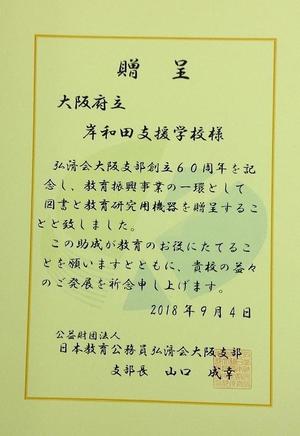 贈呈
大阪府立
岸和田支援学校様
弘済会大阪支部創立60周年を記
念し、教育振興事業の一環として
図書と教育研究用機器を贈呈するこ
とと致しました。
この助成が教育のお役にたてるこ
とを願いますとともに、貴校の益々
のご発展を祈念申し上げます。
2018年9月4日
公益財団法人
日本教育公務員弘済会大阪支部
支部長 山口 成幸